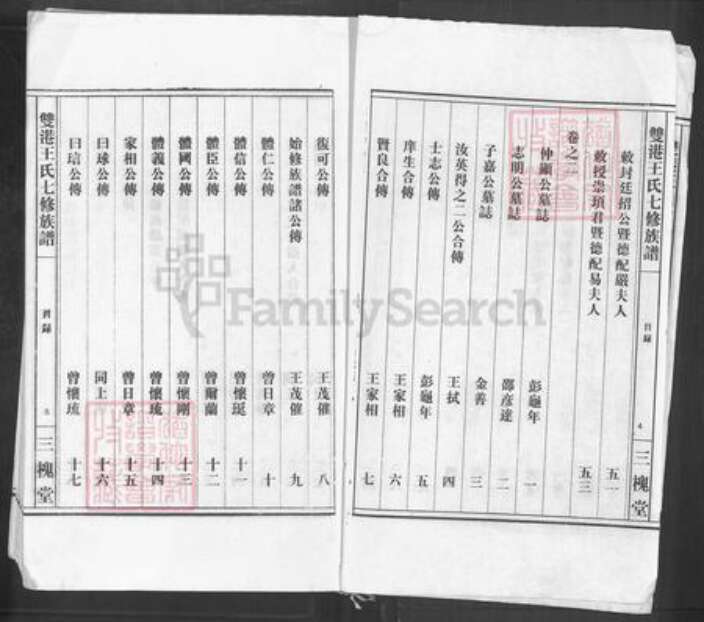 雙港王氏七修族譜
目錄
三槐堂
敕封廷招公暨德配嚴夫人 五一
敕授崇項君暨德配易夫人 五三
卷之二
仲顯公墓誌 彭龜年 一
志明公墓誌 鄒彥達 二
子嘉公墓誌 金善 三
汝英得之二公合傳 王拭 四
士志公傳 彭龜年 五
庠生合傳 王家相 六
賢良合傳 王家相 七
復可公傳 王茂催 八
始修族譜諸公傳 王茂催 九
體仁公傳 曾日章 十
體信公傳 曾懷珽 十一
體臣公傳 曾爾蘭 十二
體國公傳 曾懷剛 十三
體義公傳 曾懷琉 十四
家相公傳 曾日章 十五
日球公傳 同上 十六
日琂公傳 曾懷琉 十七
雙港王氏七修族譜
目錄
三槐堂
FamilySearch